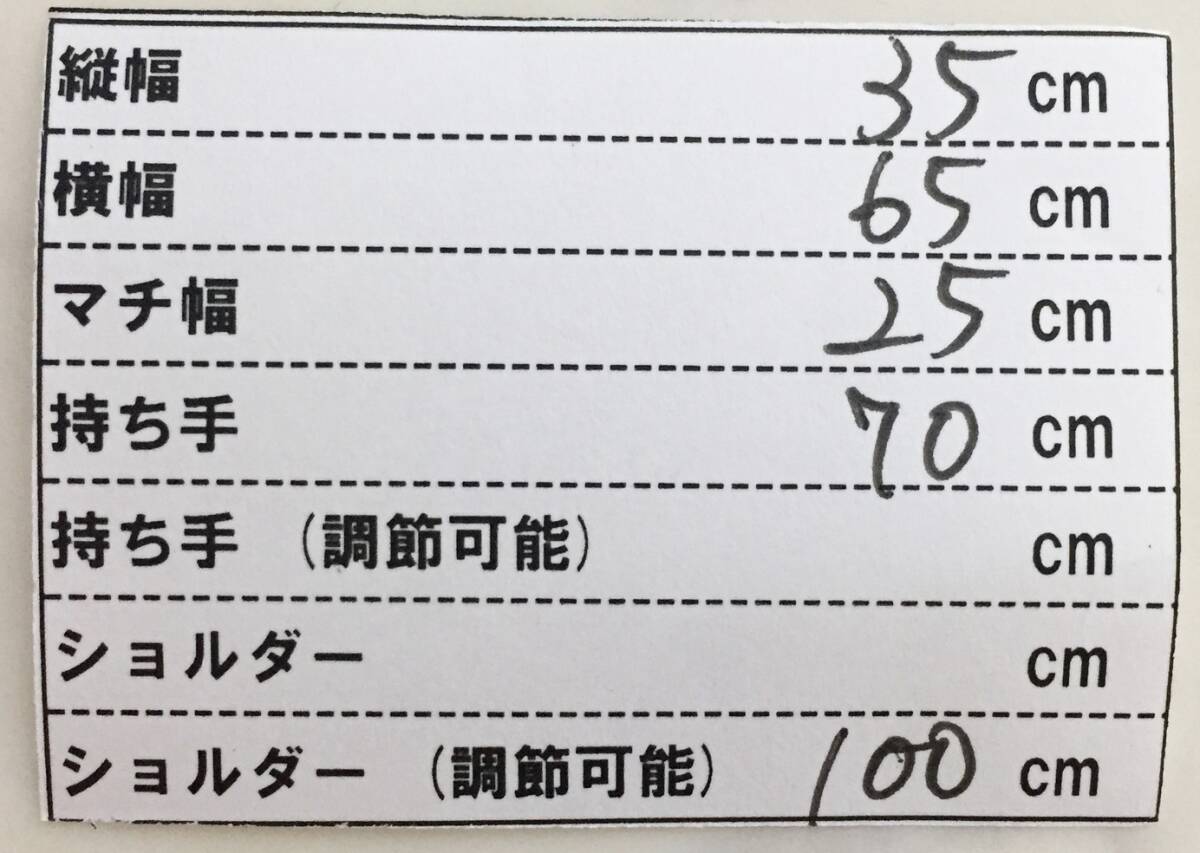 縦幅 35 cm
横幅 65 cm
マチ幅 25 cm
持ち手 70 cm
持ち手 (調節可能) cm
ショルダー cm
ショルダー (調節可能) 100 cm